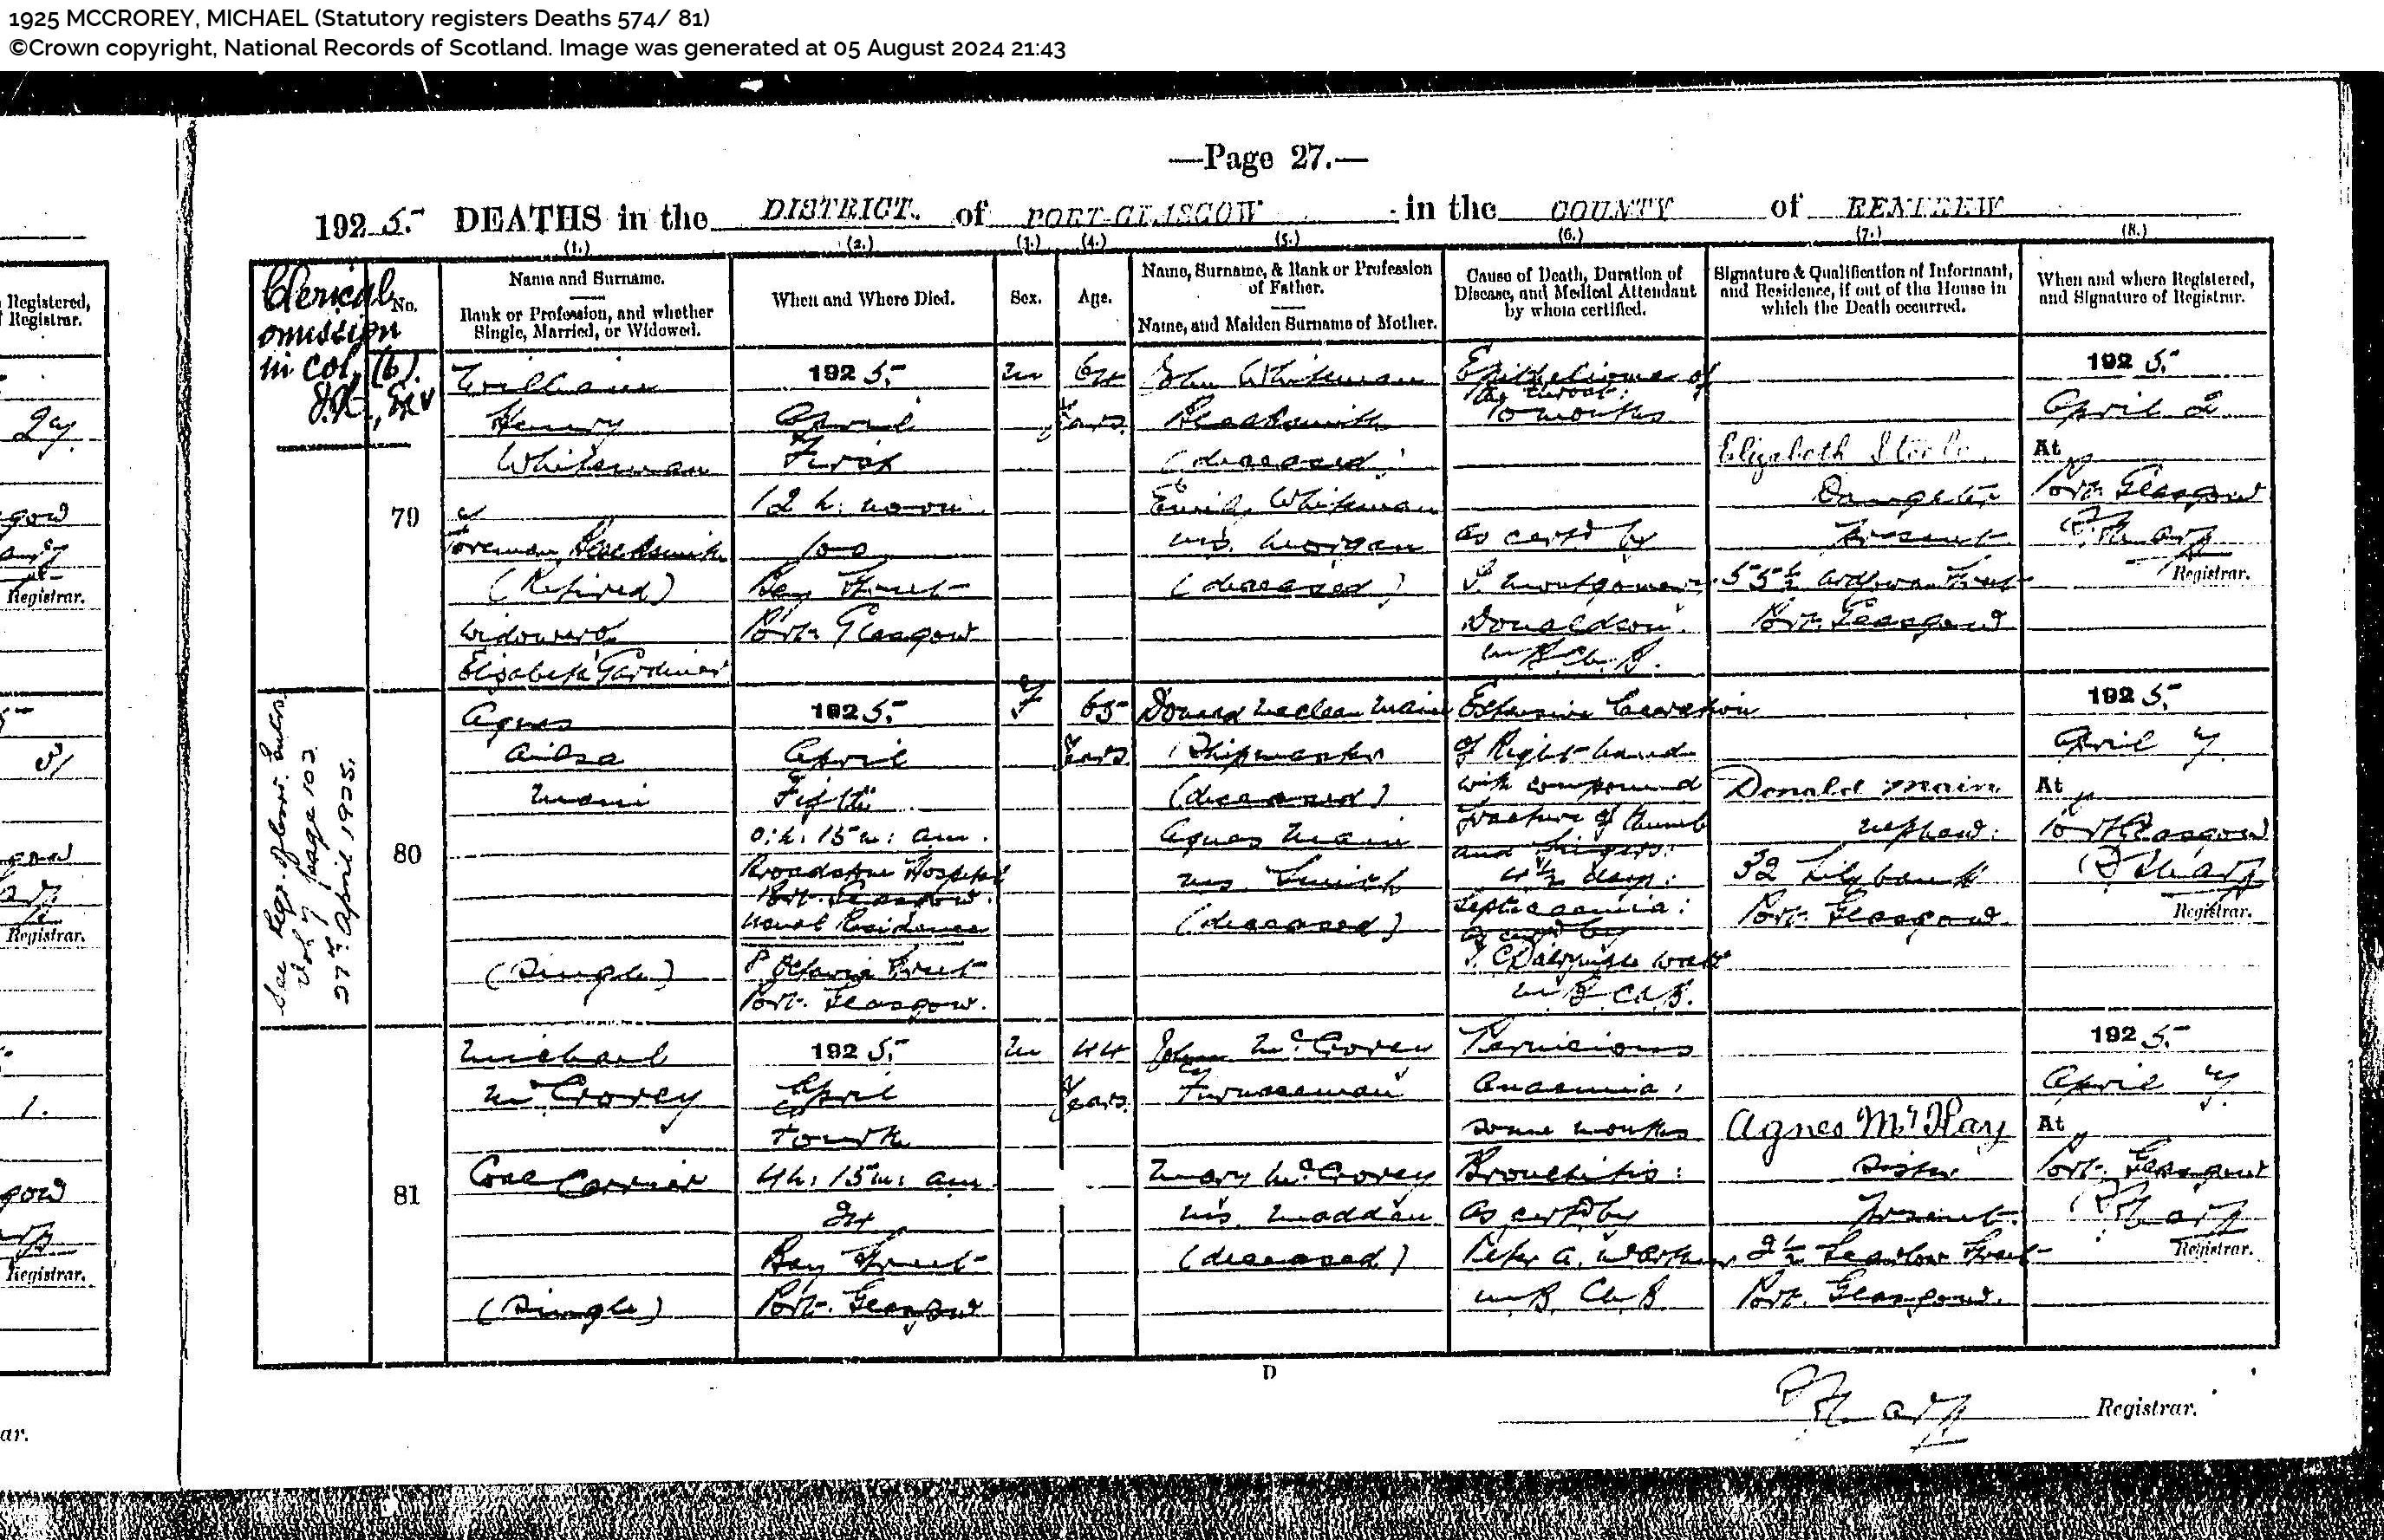 1925 MCCROREY, MICHAEL (Statutory registers Deaths 574/ 81)
©Crown copyright, National Records of Scotland. Image was generated at 05 August 2024 21:43
—Page 27.—
1925. DEATHS in the DISTRICT. of PORT-GLASGOW in the COUNTY of RENFREW
(1.) (2.) (3.) (4.) (5.) (6.) (7.) (8.)
Registered,
Registrar.
Clerical
omission
in col. (6)
No.
Name and Surname.
Rank or Profession, and whether
Single, Married, or Widowed.
When and Where Died.
Sex.
Age.
Name, Surname, & Rank or Profession
of Father.
Name, and Maiden Surname of Mother.
Cause of Death, Duration of
Disease, and Medical Attendant
by whom certified.
Signature & Qualification of Informant,
and Residence, if out of the House in
which the Death occurred.
When and where Registered,
and Signature of Registrar.
79
William
Henry
Whiteman
Foreman Blacksmith
(Retired)
Widower of
Elizabeth Gardiner
1925.
April
First
12 h. noon.
Bay Street
Port Glasgow
M
64
Years
John Whiteman
Blacksmith
(deceased)
Whiteman
ms. Morgan
(deceased)
Epithelioma of
the throat:
10 months
as certd by
Montgomery
Donaldson.
M B Ch. B.
Elizabeth Steele
Daughter
Present
55½ Ardgowan Street
Port Glasgow
1925.
April 2
At
Port Glasgow
Registrar.
See Regr. of Corr. Entries
Vol 7 page 102
27th April 1925.
80
Agnes
Ailsa
Main
(Single)
1925.
April
Fifth
0.h. 15m. am.
Broadstone Hospital
Port Glasgow.
Usual Residence
8 Octavia Street
Port Glasgow.
F
65
Years
Donald Maclean Main
Shipmaster
(deceased)
Agnes Main
ms. Smith
(deceased)
Extensive Laceration
of Right hand
with compound
Fracture of thumb
and fingers:
4½ days:
Septicaemia:
as certd by
J. C. Dalrymple Watt
M B Ch B.
Donald Main
nephew.
32 Lilybank
Port Glasgow.
1925.
April 7
At
Port Glasgow
Registrar.
81
Michael
McCrorey
Coal Carrier
(Single)
1925.
April
Fourth
4h. 15m. am.
24
Bay Street
Port Glasgow
M
44
Years.
John McCrorey
Furnaceman
Mary McCrorey
ms. Madden
(deceased)
Pernicious
Anaemia:
some months
Bronchitis:
as certd by
Peter A.
M.B. Ch B
Agnes McKay
Sister
Present.
2½ Scarlow Street
Port Glasgow.
1925.
April 7.
At
Port Glasgow
Registrar.
D
Registrar.